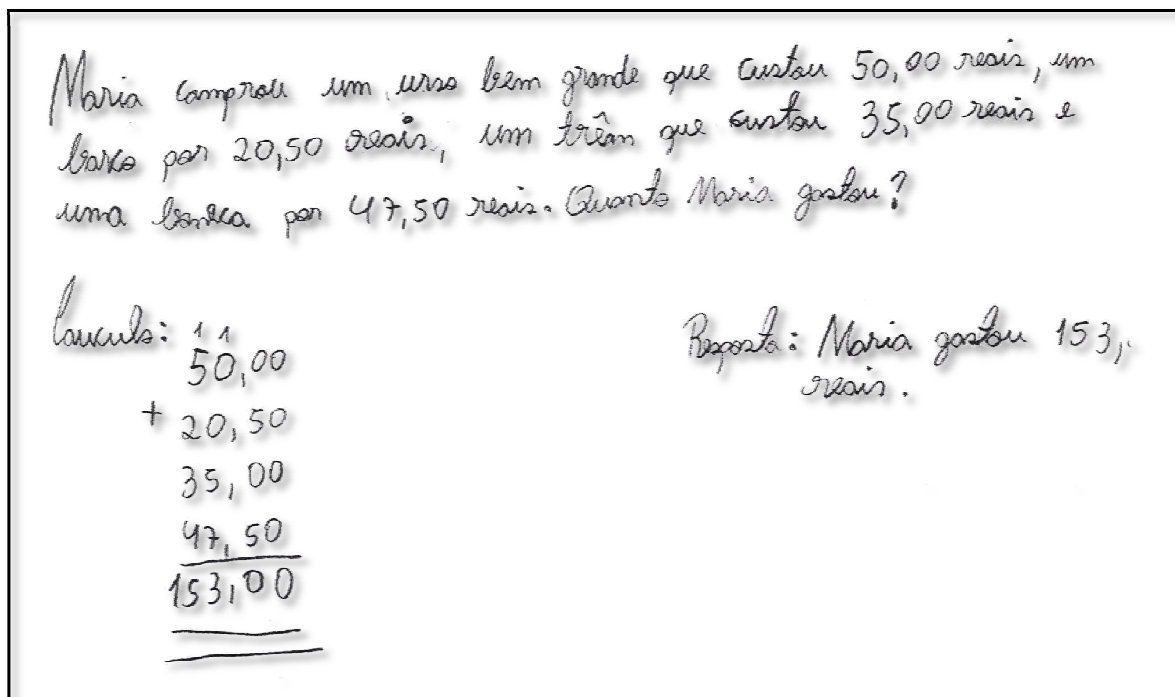 Maria comprou um urso bem grande que custou 50,00 reais, um
barco por 20,50 reais, um trêm que custou 35,00 reais e
uma boneca por 47,50 reais. Quanto Maria gastou?
Cauculo: 1 1
50,00
+ 20,50
35,00
47,50
153,00
Resposta: Maria gastou 153,
reais.